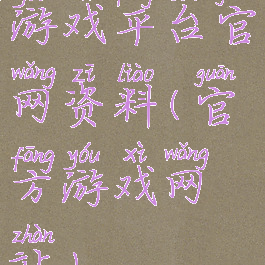 游戏平台官
wǎng zī liào guān
网资料(官
fāng yóu xì wǎng
方游戏网
zhàn
站)